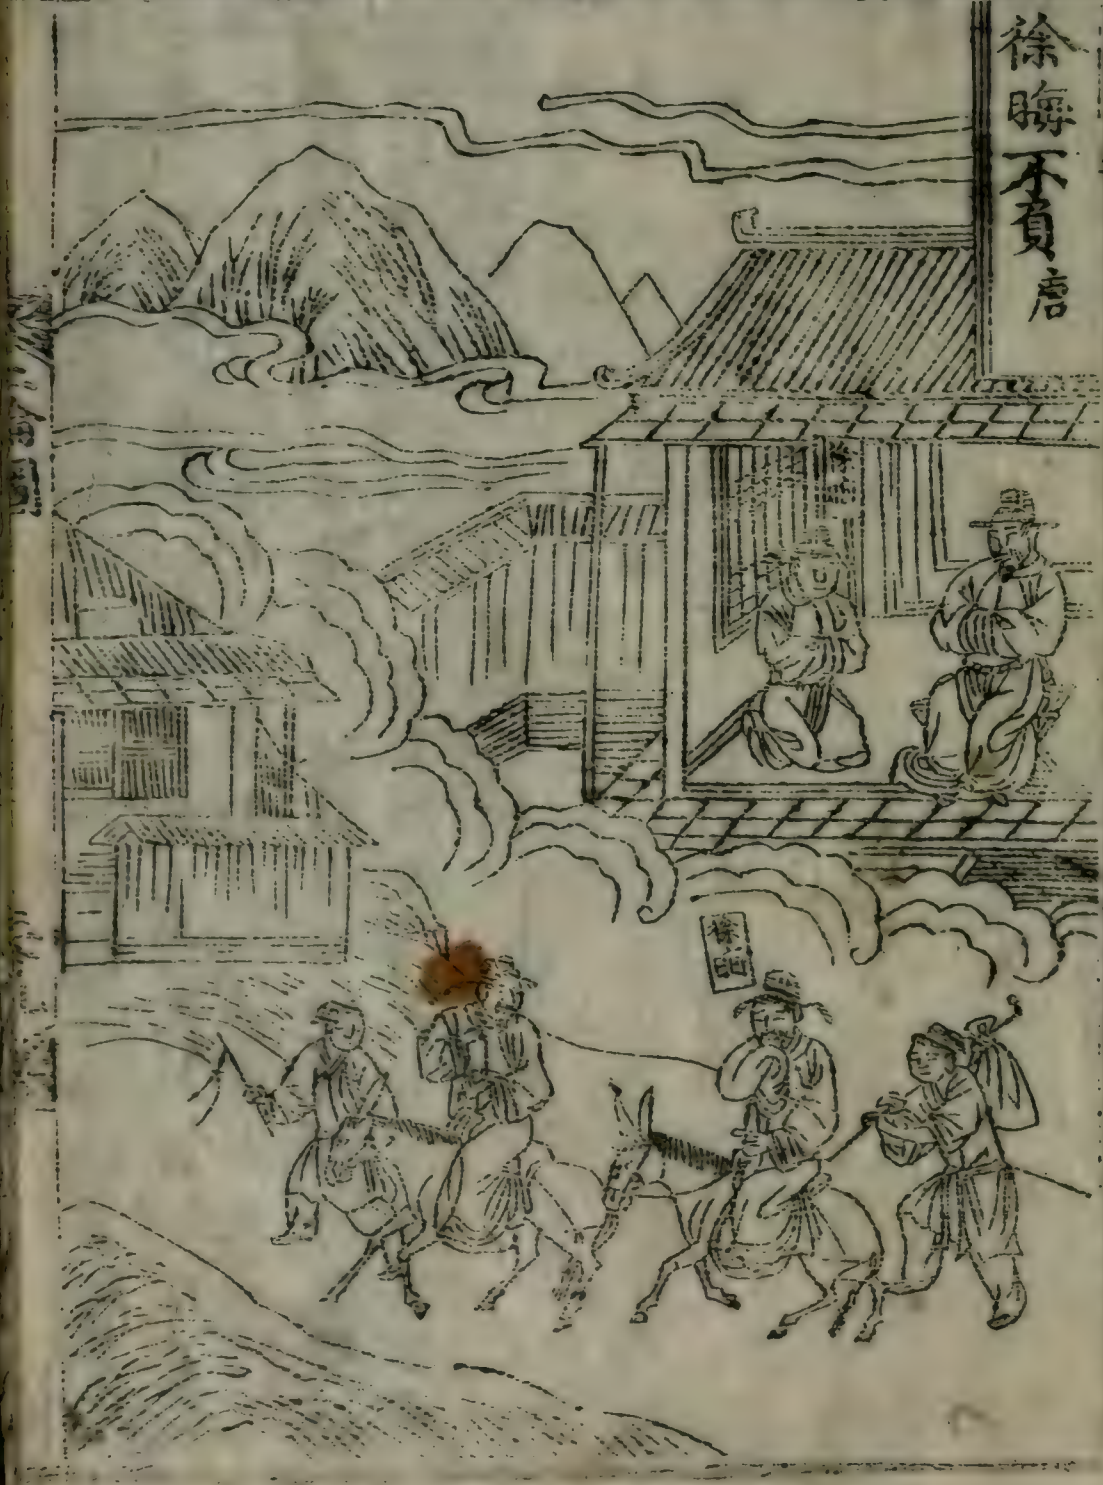 徐晦不負
唐
徐晦